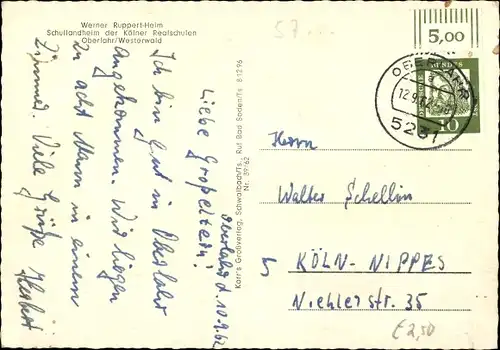 Werner Ruppert-Heim
Schullandheim der Kölner Realschulen
Oberlahr/Westerwald
Oberlahr d. 10.9.62
Liebe Großeltern!
Ich bin gut in Oberlahr
angekommen. Wir liegen
zu acht Mann in einem
Zimmer. Viele Grüße Herbert
Karr's Großverlag, Schwalbach/Ts., Ruf Bad Soden/Ts. 81296
Nr. 39/62
57...
5,00
OBERLAHR
12.9.62
5231
10
Herrn
Walter Schellin
5 KÖLN-NIPPES
Niehlerstr. 35
€ 2,50